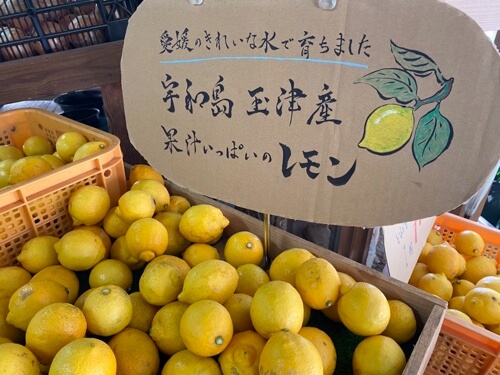 愛媛のきれいな水で育ちました
宇和島 玉津産
果汁いっぱいの レモン